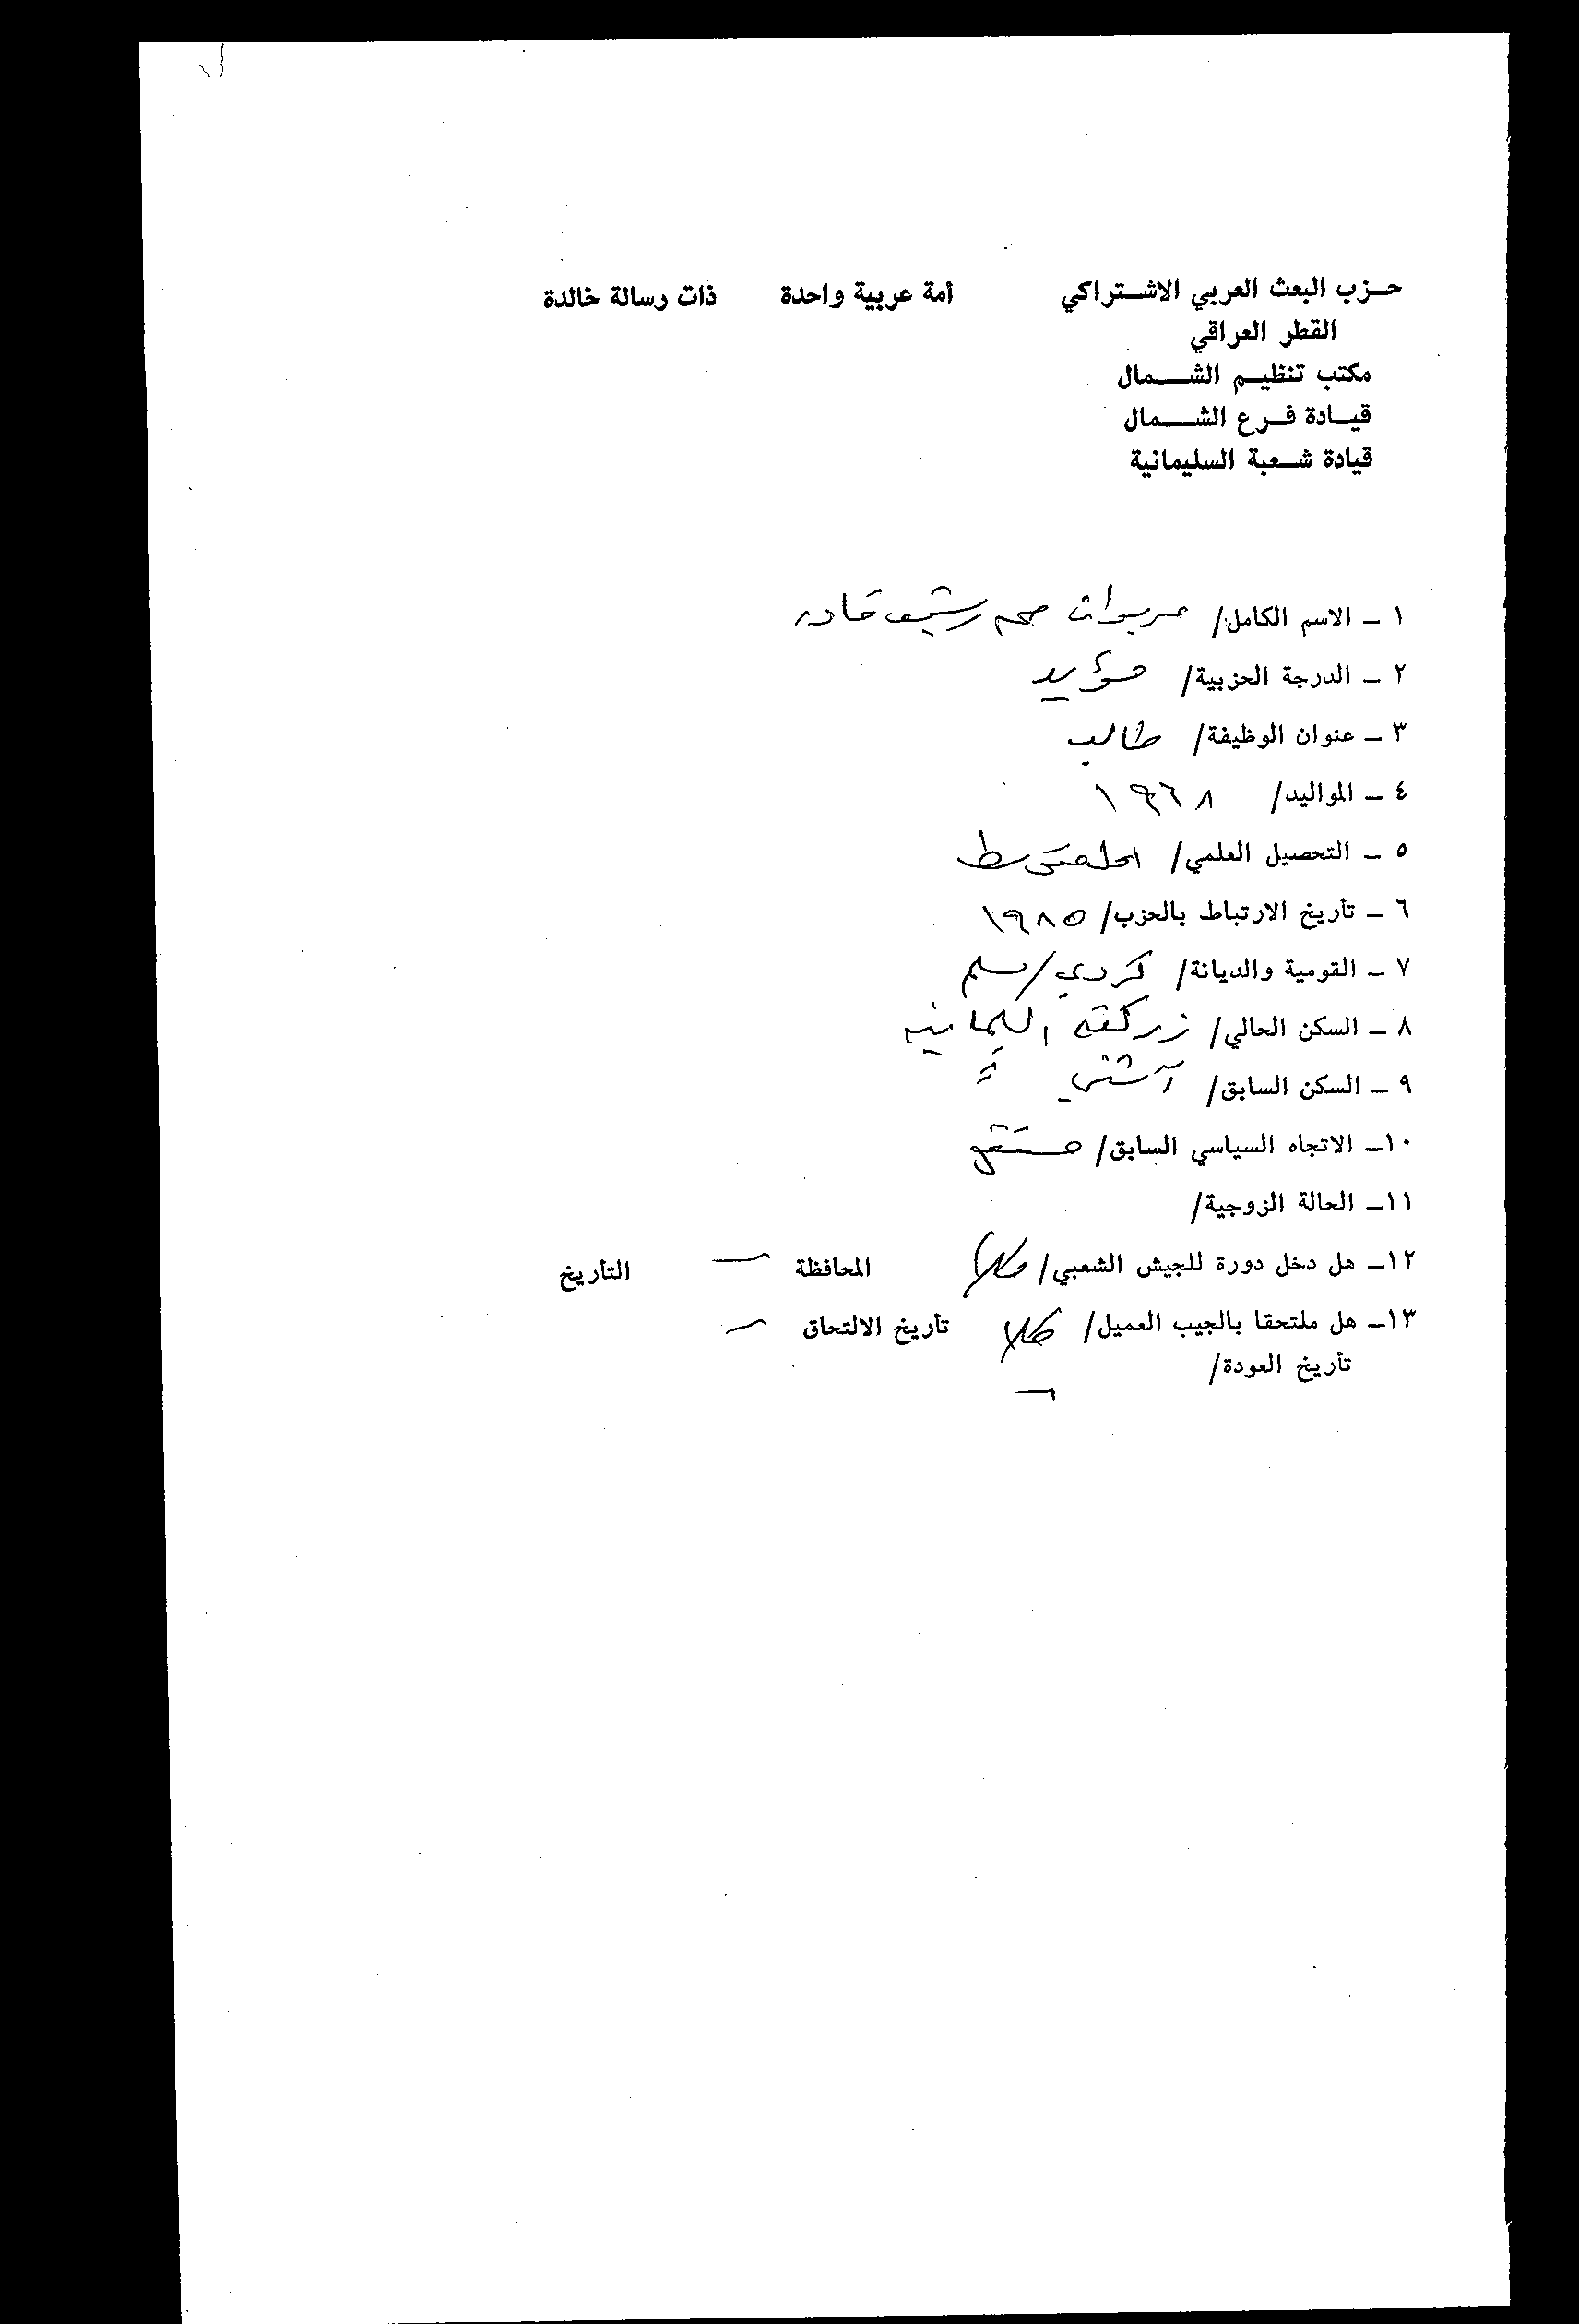 حـزب البعث العربي الاشـتراكي أمة عربية واحدة ذات رسالة خالدة
القطر العراقي
مكتب تنظيـم الشـــمال
قيـادة فـرع الشـــمال
قيادة شـعبة السليمانية
١ ـ الاسم الكامل/ مريوان محمد رشيد قادر
٢ ـ الدرجة الحزبية/ مؤيد
٣ ـ عنوان الوظيفة/ طالب
٤ ـ المواليد/ ١٩٦٨
٥ ـ التحصيل العلمي/ متوسط
٦ ـ تأريخ الارتباط بالحزب/ ١٩٨٥
٧ ـ القومية والديانة/ كردي/مسلم
٨ ـ السكن الحالي/ زركته السليمانيه
٩ ـ السكن السابق/ آشتي =
١٠ـ الاتجاه السياسي السابق/ مستقل
١١ـ الحالة الزوجية/
١٢ـ هل دخل دورة للجيش الشعبي/ كلا المحافظة ـ التأريخ
١٣ـ هل ملتحقا بالجيب العميل/ كلا تأريخ الالتحاق ـ
تأريخ العودة/ ـ